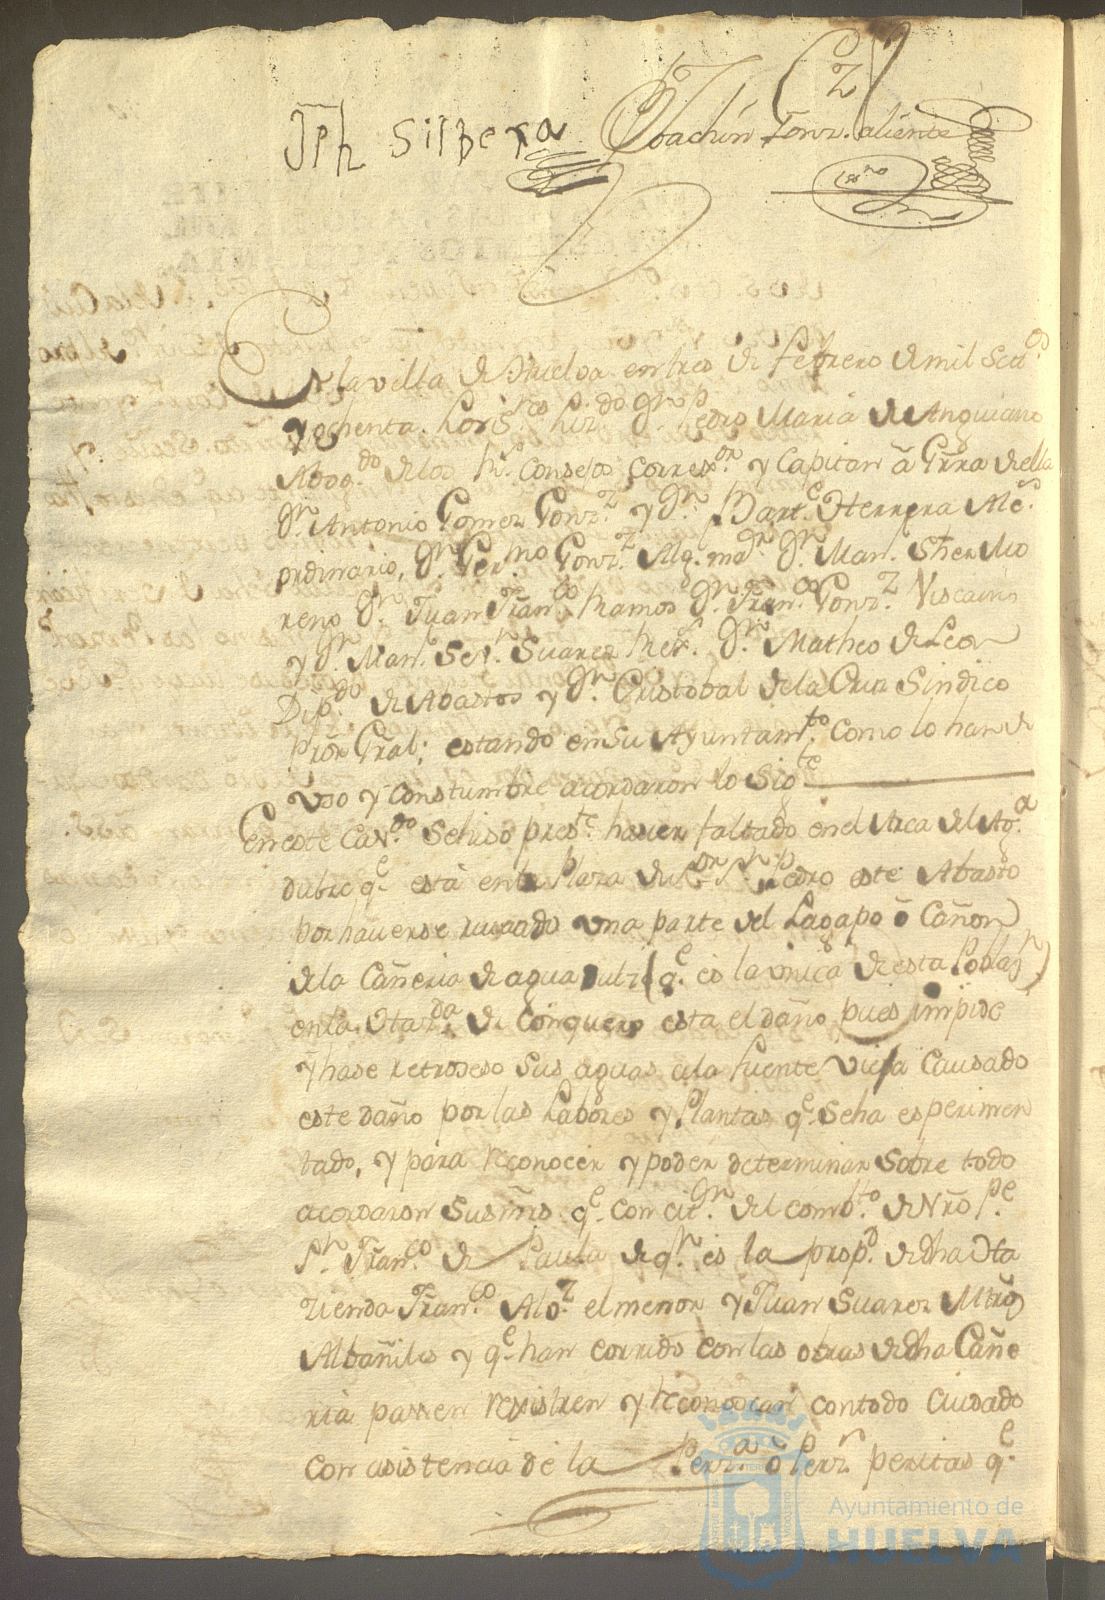 Jph Silbera Joachin Gonz. aliente
ess.no
En la villa de Huelva en tres de Febrero de mil Set.os
y ochenta. los S.res Liz.do Dn. Pedro Maria de Anguiano
Abog.do de los Rs. Consejos Corregor. y Capitan á Grra de ella
Dn. Antonio Gomez Gonz.z y Dn. Bart.e Herrera Alc.s
ordinario, Dn. Ger.mo Gonz.z Alg. mor. Dn. Man. Mo
reno Dn. Juan Fran.co Ramos Dn. Fran.co Gonz.z Viscaino
y Dn. Man. Suarez Rex.s Dn. Matheo de Leon
Dip.do de Abastos y Dn. Cristobal de la Cruz Sindico
Prōr Gral; estando en su Ayuntam.to como lo han de
uso y constumbre acordaron lo Sig.te
En este Cav.do Se hiso pres.te haver faltado en el Arca del Ag.a
dulce q.e está en la Plaza de S.or Sn. Pedro este Abasto
por haverse una parte del Lagapo ō Cañon
de la Cañeria de agua dulz (q.e es la unica de esta Poblaz.n)
en la Htaz.da de Conquero esta el daño pues impide
y hase retroseso sus aguas a la fuente vieja Causado
este daño por las Labores y Plantas q.e Se ha esperimen
tado, y para reconocer y poder determinar sobre todo
acordaron Sus mrs. q.e con cit.n del comb.to de Nro Pe
Sn. Fran.co de Paula de qn. es la prop.d de dha Hta
zienda Fran.co Alo.z el menor y Juan Suarez Mtrō
Albañiles y q.e han corrido con las obras de dha Cañe
ria passen rexistren y reconoscan con todo cuidado
con asistencia de la Perz.a ō Perz.s peritas q.e
Ayuntamiento de
HUELVA